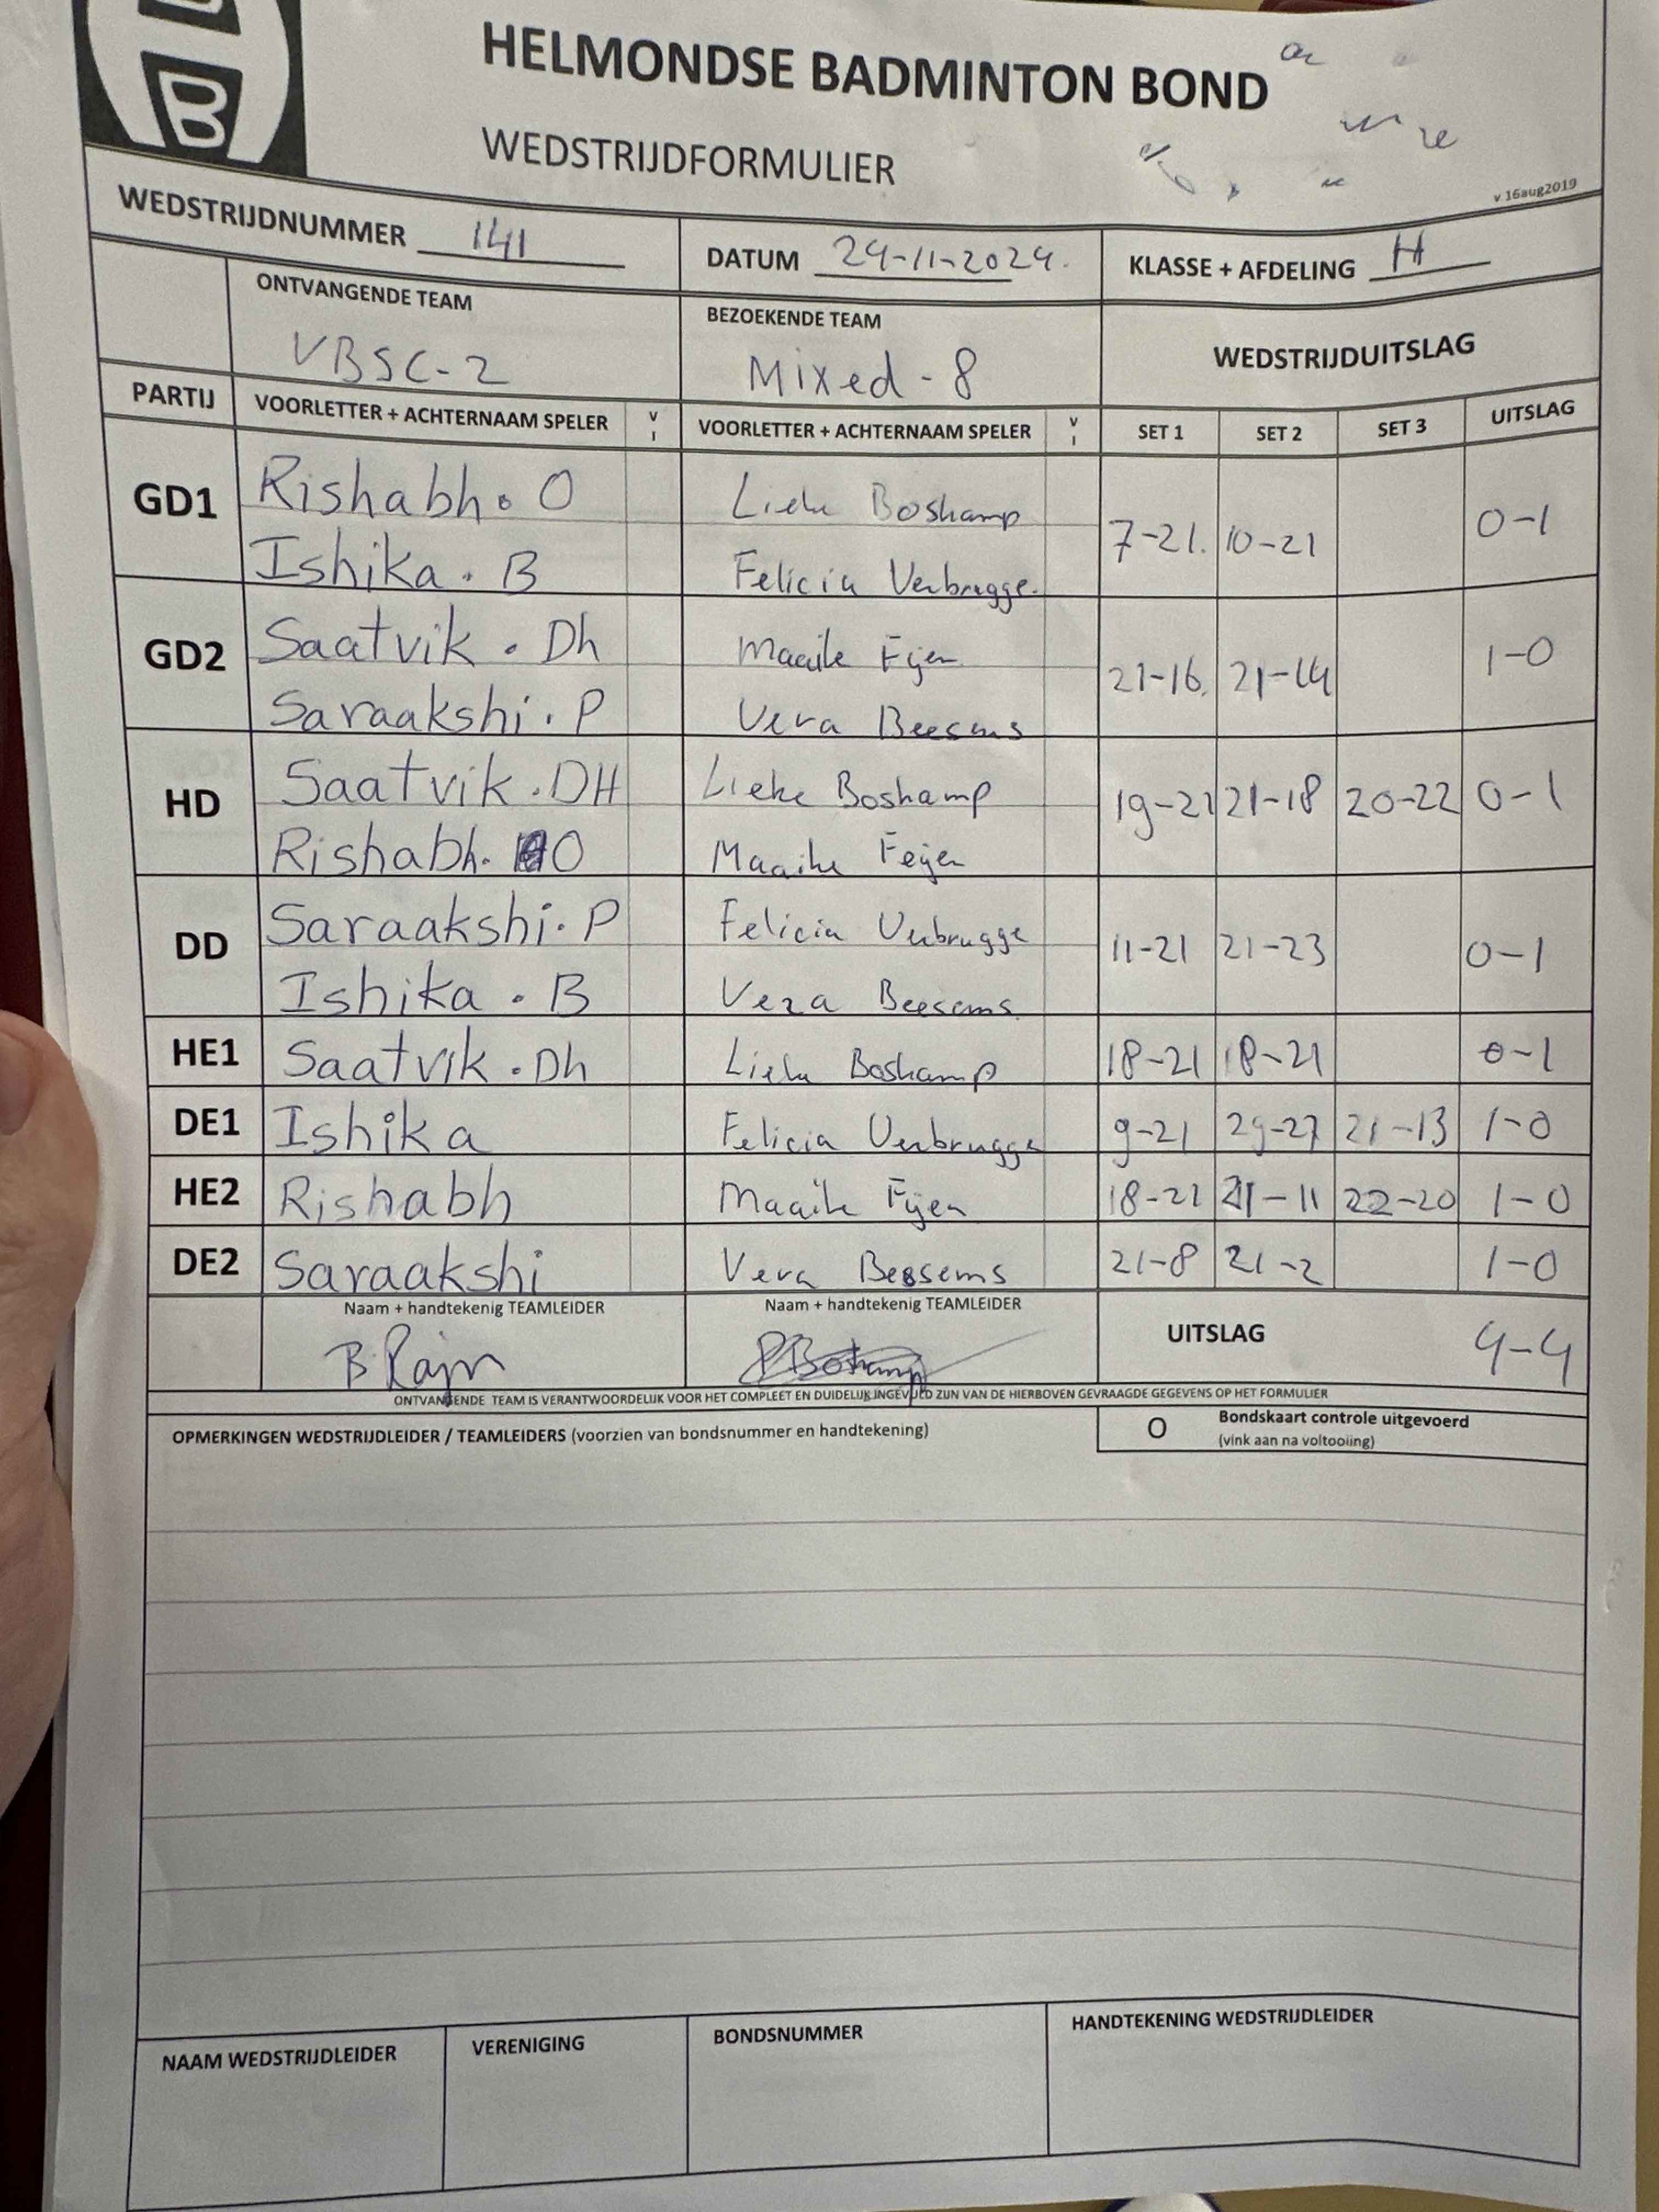 B
HELMONDSE BADMINTON BOND
WEDSTRIJDFORMULIER
v 16aug2019
WEDSTRIJDNUMMER 141 DATUM 24-11-2024. KLASSE + AFDELING H
ONTVANGENDE TEAM BEZOEKENDE TEAM WEDSTRIJDUITSLAG
VBSC-2 Mixed-8
PARTIJ VOORLETTER + ACHTERNAAM SPELER V I VOORLETTER + ACHTERNAAM SPELER V I SET 1 SET 2 SET 3 UITSLAG
GD1 Rishabh. O Lieke Boshamp 7-21. 10-21 0-1
Ishika. B Felicia Verbrugge.
GD2 Saatvik. Dh Maaike Feijen 21-16. 21-14 1-0
Saraakshi. P Vera Beesems
HD Saatvik. DH Lieke Boshamp 19-21 21-18 20-22 0-1
Rishabh. O Maaike Feijen
DD Saraakshi. P Felicia Verbrugge 11-21 21-23 0-1
Ishika. B Vera Beesems
HE1 Saatvik. Dh Lieke Boshamp 18-21 18-21 0-1
DE1 Ishika Felicia Verbrugge 9-21 29-27 21-13 1-0
HE2 Rishabh Maaike Feijen 18-21 21-11 22-20 1-0
DE2 Saraakshi Vera Bessems 21-8 21-2 1-0
Naam + handtekenig TEAMLEIDER Naam + handtekenig TEAMLEIDER UITSLAG 4-4
B Rajn
ONTVANGENDE TEAM IS VERANTWOORDELIJK VOOR HET COMPLEET EN DUIDELIJK INGEVULD ZIJN VAN DE HIERBOVEN GEVRAAGDE GEGEVENS OP HET FORMULIER
OPMERKINGEN WEDSTRIJDLEIDER / TEAMLEIDERS (voorzien van bondsnummer en handtekening) O Bondskaart controle uitgevoerd
(vink aan na voltooiing)
NAAM WEDSTRIJDLEIDER VERENIGING BONDSNUMMER HANDTEKENING WEDSTRIJDLEIDER